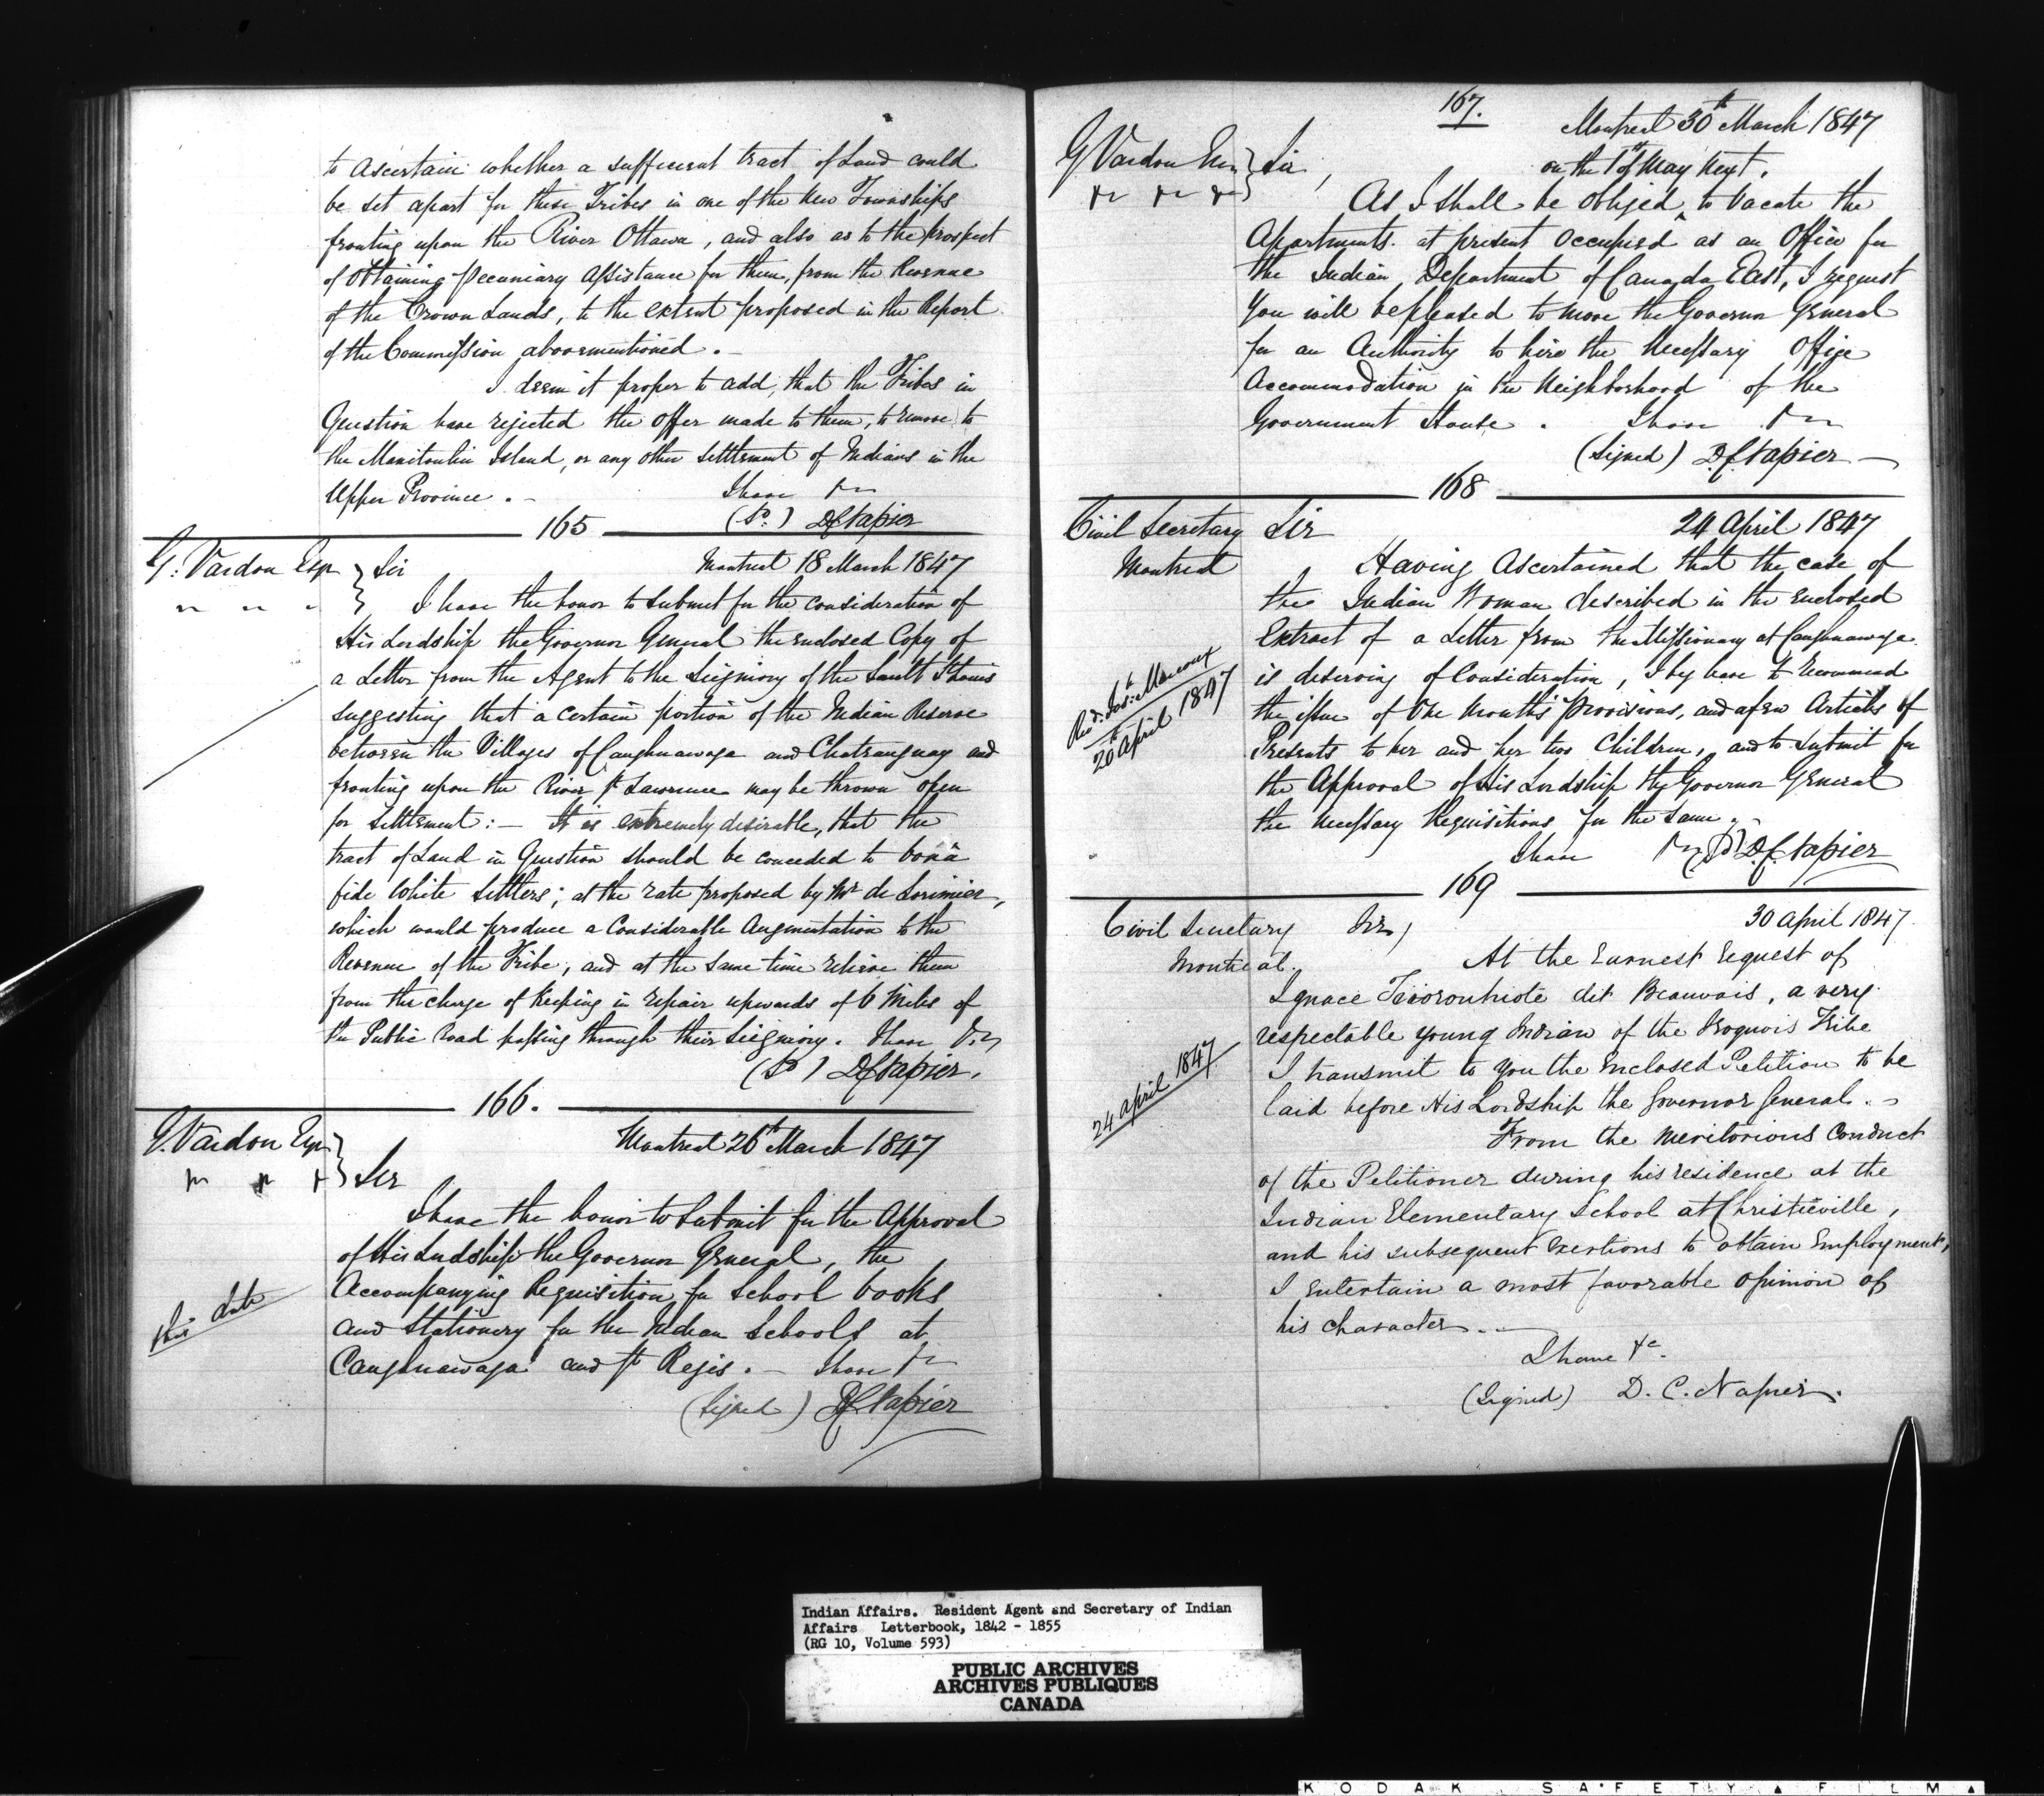 to ascertain whether a sufficient tract of Land could
be set apart for these Tribes in one of the New Townships
fronting upon the River Ottawa, and also as to the prospect
of obtaining pecuniary Assistance for them, from the Revenue
of the Crown Lands, to the extent proposed in the Report
of the Commission abovementioned. -
I deem it proper to add, that the Tribes in
Question have rejected the offer made to them, to remove to
the Manitoulin Island, or any other settlement of Indians in the
Upper Province. - I have &c
(Sd.) D.C. Napier
165
G. Vardon Esq } Sir Montreal 18 March 1847
I have the honor to submit for the consideration of
His Lordship the Governor General the enclosed Copy of
a Letter from the Agent to the Seigniory of the Sault St Louis
suggesting that a certain portion of the Indian Reserve
between the Villages of Caughnawaga and Chateauguay and
fronting upon the River St Lawrence may be thrown open
for settlement: - It is extremely desirable, that the
tract of Land in Question should be conceded to bonâ
fide White settlers; at the rate proposed by Mr de Lorimier,
which would produce a Considerable Augmentation to the
Revenue of the Tribe, and at the same time relieve them
from the charge of Keeping in repair upwards of 6 Miles of
the Public Road passing through their Seigniory. I have &c
(Sd) D.C. Napier.
166.
G. Vardon Esqr } Montreal 26th March 1847
Sir
I have the honor to submit for the Approval
of His Lordship the Governor General, the
Accompanying Requisition for School books
and Stationery for the Indian Schools at
Caughnawaga and St Regis. - I have &c
this date
(Signed) D.C. Napier
167.
Montreal 30th March 1847
G Vardon Esq } Sir,
on the 1st of May Next.
As I shall be obliged ^ to vacate the
Apartments at present Occupied as an Office for
the Indian Department of Canada East, I request
You will be pleased to move the Governor General
for an Authority to hire the Necessary Office
Accommodation in the Neighborhood of the
Government House. I have &c
(Signed) D.C. Napier -
168
Civil Secretary Sir 24 April 1847
Montreal
Having Ascertained that the case of
the Indian Woman described in the Enclosed
Extract of a Letter from the Missionary at Caughnawaga
is deserving of Consideration, I beg leave to recommend
the issue of One Month's Provisions, and a few Articles of
Presents to her and her two Children, and to submit for
the Approval of His Lordship the Governor General
the necessary Requisitions for the same.
Revd. Jos. Marcoux
20th April 1847
I have &c (Sd) D.C. Napier
169
Civil Secretary Sir, 30 April 1847
Montreal.
At the Earnest request of
Ignace dit Beauvais, a very
respectable young Indian of the Iroquois Tribe
I transmit to you the Enclosed Petition to be
laid before His Lordship the Governor General. -
24 April 1847
From the meritorious Conduct
of the Petitioner during his residence at the
Indian Elementary School at Christieville,
and his subsequent exertions to obtain Employment,
I entertain a most favorable opinion of
his character. -
I have &c.
(Signed) D. C. Napier.
Indian Affairs. Resident Agent and Secretary of Indian
Affairs Letterbook, 1842 - 1855
(RG 10, Volume 593)
PUBLIC ARCHIVES
ARCHIVES PUBLIQUES
CANADA
KODAK SAFETY FILM